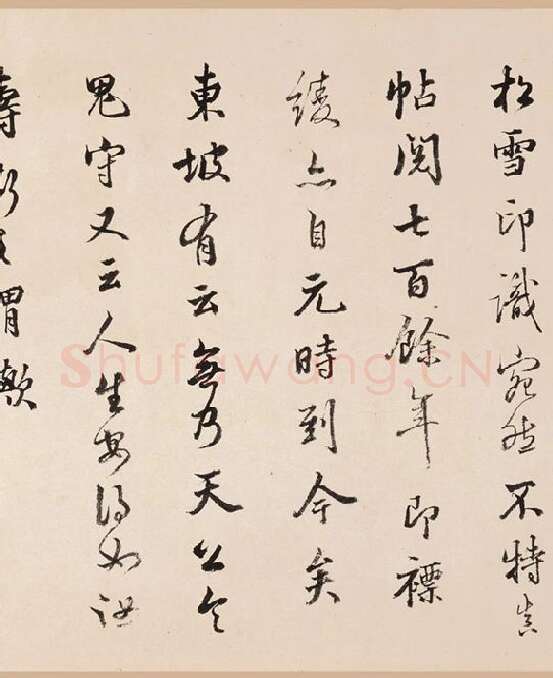 松雪印識宛然不特真
帖閱七百餘年即褾
綾亦自元時到今矣
東坡有云無乃天公令
鬼守又云人生安得如汝
壽 謂歟
Shufawang.CN